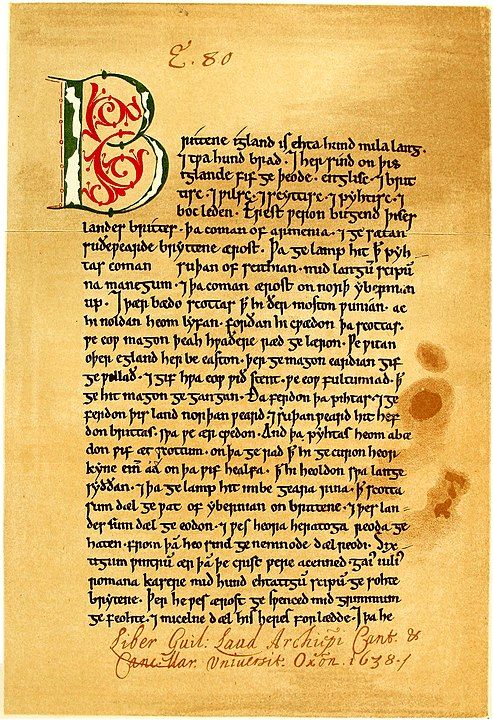 E. 80
Brittene igland is ehta hund mila lang.
⁊ tƿa hund brad. ⁊ her sind on þis
iglande fif ge þeode. englisc. ⁊ brit
tisc. ⁊ ƿilsc. ⁊ scyttisc. ⁊ pyhtisc. ⁊
boc leden. Erest ƿeron bugend þises
landes brittes. þa coman of armenia. ⁊ ge sætan
suðeƿearde bryttene ærost. Þa ge lamp hit ꝥ pyh
tas coman suþan of scithian. mid langū scipū
na manegum. ⁊ þa coman ærost on norþ ybernian
up. ⁊ þær bædo scottas ꝥ hi ðer moston ƿunian. ac
hi noldan heom lyfan. forðan hi cƿædon þa scottas.
ƿe eoƿ magon þeah hƿaðere ræd ge læron. Ƿe ƿitan
oþer egland her be easton. þer ge magon eardian gif
ge ƿillað. ⁊ gif hƿa eoƿ ƿið stent. ƿe eoƿ fultumiað. ꝥ
ge hit magon ge gangan. Ða ferdon þa pihtas. ⁊ ge
ferdon þis land norþan ƿeard. ⁊ suþan ƿeard hit hef
don brittas. sƿa ƿe ær cƿedon. And þa pyhtas heom abæ
don ƿif æt scottum. on þa ge rad ꝥ hi ge curon heor
kyne cin̄ aa on þa ƿif healfa. ꝥ hi heoldon sƿa lange
syððan. ⁊ þa ge lamp hit imbe geara rina. ꝥ scotta
sum dæl ge ƿat of ybernian on brittene. ⁊ þes lan
des sum dæl ge eodon. ⁊ ƿes heora heratoga reoda ge
haten. from þā heo sind ge nemnode dæl reodi. Six
tigum ƿintrū ær þā þe crist ƿere acenned. gai' iuli'
romana kasere mid hund ehtatigū scipū ge sohte
brytene. Þer he ƿes ærost ge sƿenced mid grimmum
ge feohte. ⁊ micelne dæl his heres for lædde. ⁊ þa he
Liber Guil: Laud Archiēpi Cant. &
Cancellar. Universit. Oxon. 1638.